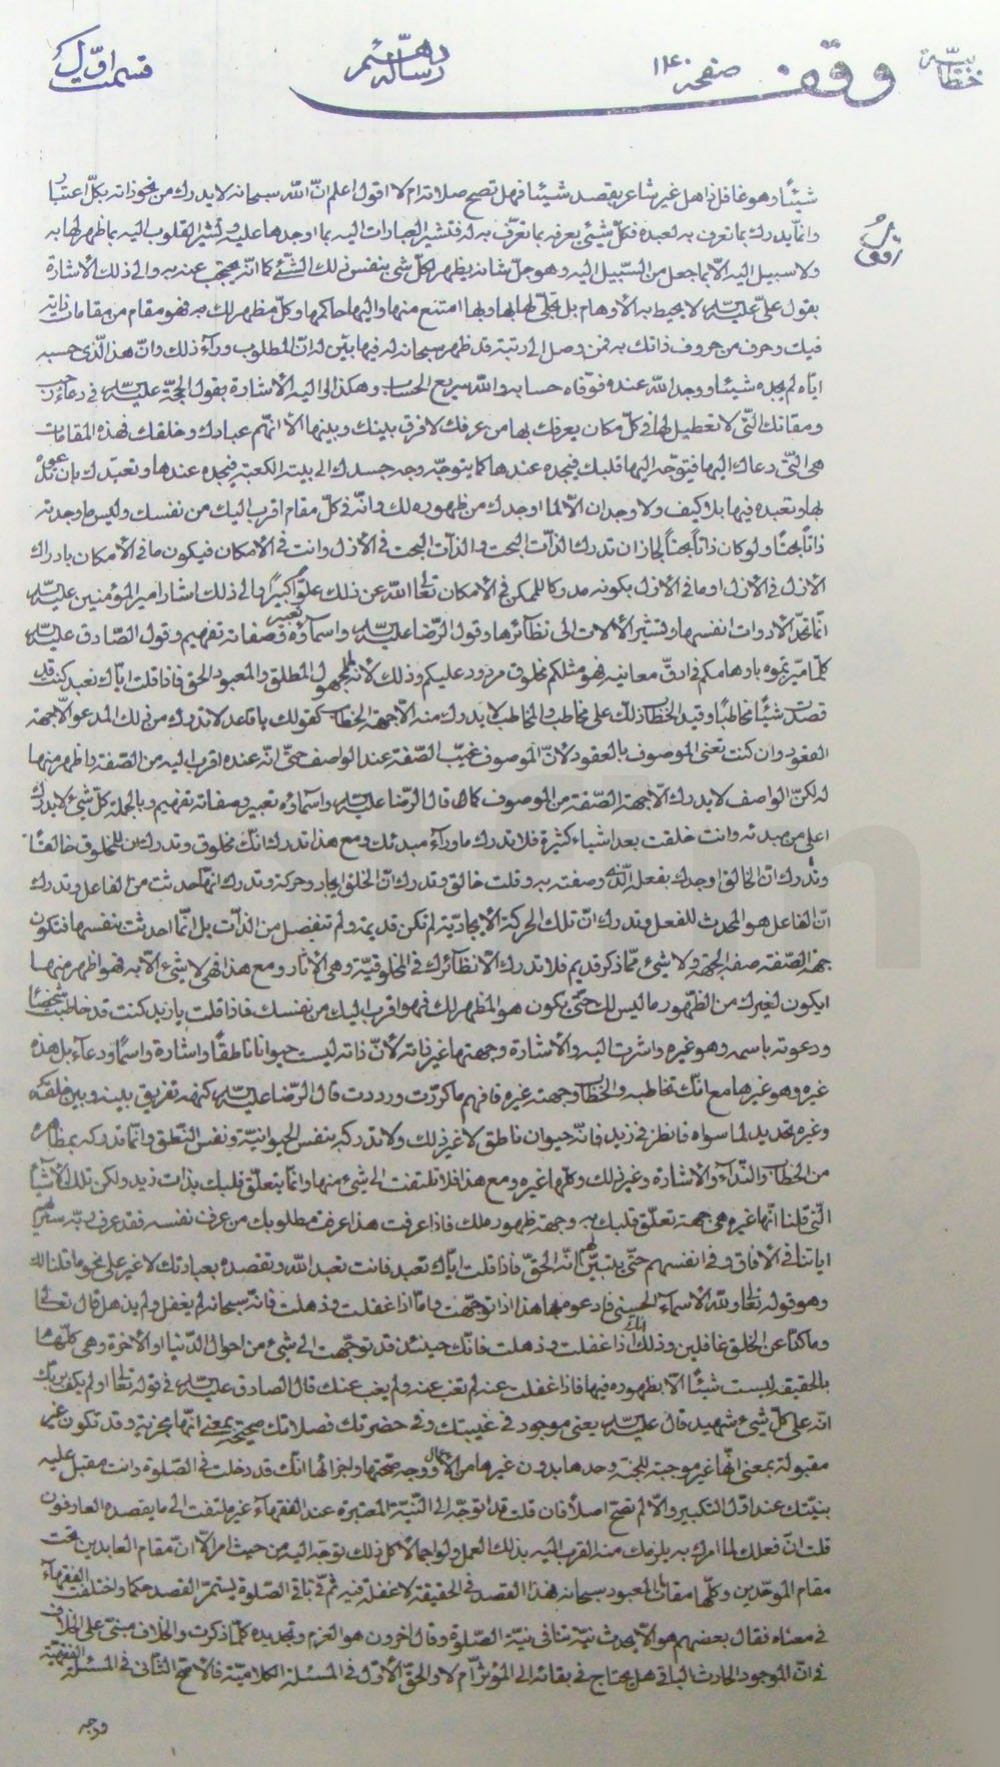 خطابیة وقف صفحه ۱۱۴۰ رسالهٔ هشتم قسمت اوّل
شیئاً وهو غافل ذاهل غیر شاعر بقصد شیئا فهل تصح صلاته ام لا اقول اعلم انّ الله سبحانه لا یدرك من نحو ذاته بكلّ اعتبار
اقول
وانّما یدرك بما تعرف به لعبده فكلّ شیئ یعرفه بما تعرّف به له فتشیر العبارات الیه بما اوجدها علیه و تشیر القلوب الیه بما ظهر لها به
ولا سبیل الیه الّا بما جعل من السّبیل الیه وهو جلّ شانه یظهر لكلّ شیء بنفس ذلك الشّئ كما انّه یحتجب عنه به والی ذلك الاشارة
بقول علیّ علیه السلام لا یحیط به الاوهام بل تجلّی لها بها وبها امتنع منها والیها حاكمها وكلّ مظهر لك به فهو مقام من مقامات ذاته
فیك وحرف من حروف ذاتك به فمن وصل الی رتبة قد ظهر سبحانه له فیها یتبیّن له انّ المطلوب وراء ذلك وانّ هذا الّذی حسبه
ایّاه لم یجده شیئا ووجد الله عنده فوفاه حسابه والله سریع الحساب وهكذا والیه الاشارة بقول الحجّة علیه السلام فی دعاء رجب
ومقاماتك الّتی لا تعطیل لها فی كلّ مكان یعرفك بها من عرفك لا فرق بینك وبینها الّا انّهم عبادك وخلقك فهذه المقامات
هی الّتی دعاك الیها فیتوجّه الیها قلبك فیجده عندها كما یتوجّه وجه جسدك الی بیته الكعبة فیجده عندها وتعبّدك بان تدعوه
بها وتعبده فیها بلا كیف ولا وجدان الّا لما اوجدك من ظهوره لك وانّه فی كلّ مقام اقرب الیك من نفسك ولیس ما وجدته
ذاتاً بحتاً ولو كان ذاتاً بحتاً لجاز ان تدرك الذّات البحت والذّات البحت فی الازل وانت فی الامكان فیكون ما فی الامكان یادراك
الازل فی الازل او ما فی الازل بكونه مدركا للممكن فی الامكان تعالی الله عن ذلك علوّاً كبیراً والی ذلك اشار امیر المؤمنین علیه السلام
انّما تحدّ الادوات انفسها وتشیر الآلات الی نظائرها وقول الرّضا علیه السلام واسماؤه تعبیر وصفاته تفهیم وقول الصّادق علیه السلام
كلّما میّزتموه باوهامكم فی ادقّ معانیه فهو مثلكم مخلوق مردود علیكم وذلك لانّه المجهول المطلق والمعبود الحق فاذا قلت ایّاك نعبد كنت قد
قصدت شیئا مخاطباً وقید الخطاب ذلك علی مخاطب والمخاطب لا یدرك منه الّا جهة الخطاب كقولك یا قاعد لا تدرك من ذلك المدعو الّا جهة
القعود وان كنت تعنی الموصوف بالعقود لانّ الموصوف غیّب الصّفة عند الواصف حتّی انّه عنده اقرب الیه من الصّفة واظهر منها
له لكنّ الواصف لا یدرك الّا جهة الصّفة من الموصوف كما قال الرّضا علیه السلام واسماؤه تعبیر وصفاته تفهیم وبالجملة كلّ شیئ لا یدرك
اعلی من مبدئه وانت خلقت بعد اشیاء كثیرة فلا تدرك ما وراء مبدئك ومع هذا تدرك انّك مخلوق وتدرك ان للمخلوق خالقاً
وتدرك انّ الخالق اوجدك بفعله الّذی وصفته به وقلت خالق وتدرك انّ الخلق ایجاد وحركة وتدرك انّها حدثت من الفاعل وتدرك
انّ الفاعل هو المحدث للفعل وتدرك انّ تلك الحركة الایجادیّة لم تكن قدیمة ولم تنفصل من الذّات بل انّما احدثت بنفسها فتكون
جهة الصّفة صفة الجهة ولا شیئ ممّا ذكر قدیم فلا تدرك الّا نظائرك فی المخلوقیّة وهی الآثار ومع هذا فهی لا شیء الّا به فهو اظهر منها
ایكون لغیرك من الظّهور ما لیس لك حتّی یكون هو المظهر لك فهو اقرب الیك من نفسك فاذا قلت یا زید كنت قد خاطبت شخصاً
ودعوته باسمه وهو غیره واشرت الیه والاشارة وجهتها غیر ذاته لانّ ذاته لیست حیوانا ناطقاً واشارة واسماً ودعاء بل هذه
غیره وهو غیرها مع انّك تخاطبه والخطاب وجهته غیره فافهم ما كرّرت ورددت قال الرّضا علیه السلام كنهه تفریق بینه وبین خلقه
وغیره تحدید لما سواه فانظر فی زید فانّه حیوان ناطق لا غیر ذلك ولا تدركه بنفس الحیوانیّة ونفس النّطق وانّما تدركه بمظاهره
من الخطاب والنّداء والاشارة وغیر ذلك وكلّها غیره ومع هذا فلا تلتفت الی شیئ منها وانّما یتعلّق قلبك بذات زید ولكن تلك الاشیاء
الّتی قلنا انّها غیره هی جهة تعلّق قلبك به وجهة ظهوره لك فاذا عرفت هذا عرفت مطلوبك من عرف نفسه فقد عرف ربّه سنریهم
ایاتنا فی الآفاق وفی انفسهم حتّی یتبیّن لهم انّه الحقّ فاذا قلت ایّاك نعبد فانت تعبد الله وتقصده بعبادتك لا غیر علی نحو ما قلنا لك
وهو قوله تعالی ولله الاسماء الحسنی فادعوه بها هذا اذا توجّهت وامّا اذا غفلت وذهلت فانّه سبحانه لم یغفل ولم یذهل قال تعالی
وما كنّا عن الخلق غافلین وذلك انك اذا غفلت وذهلت فانّك حینئذ قد توجّهت الی شیئ من احوال الدّنیا او الآخرة وهی كلّها
بالحقیقة لیست شیئاً الّا بظهوره فیها فاذا غفلت عنه لم تغب عنه ولم یغب عنك قال الصادق علیه السلام فی قوله تعالی اولم یكف بربّك
انّه علی كلّ شیئ شهید قال علیه السلام یعنی موجود فی غیبتك وفی حضرتك فصلاتك صحیحة بمعنی انّها مجزیة وقد تكون غیر
مقبولة بمعنی انّها غیر موجبة للجنّة وحدها بدون غیرها من الاعمال ووجه صحّتها واجزائها انّك قد دخلت فی الصّلوة وانت مقبل علیه
بنیّتك عند اوّل التكبیر والّا لم تصحّ اصلاً فان قلت قد اتوجّه الی النّیّة المعتبرة عند الفقهاء غیر ملتفت الی ما یقصده العارفون
قلت انّ فعلك لما امرك به یلزمك منه القرب الیه بذلك العمل ولو اجمالاً كل ذلك توجّه الیه من حیث امر الّا انّ مقام العابدین تحت
مقام الموحّدین وكلّها مقامات المعبود سبحانه فهذا القصد فی الحقیقة لا غفلة فیه ثمّ فی باقی الصّلوة یستمرّ القصد حكما واختلفت الفقهاء
فی معناه فقال بعضهم هو الّا یحدث نیّة تنافی نیّة الصّلوة وقال اخرون هو العزم وتجدیده كلّما ذكرت والخلاف مبنیّ علی الخلاف
فی انّ الموجود الحادث الباقی هل یحتاج فی بقائه الی المؤثّر ام لا والحقّ الاوّل فی المسئلة الكلامیّة فالاصحّ الثّانی فی المسئلة الفقهیّة
ووجه